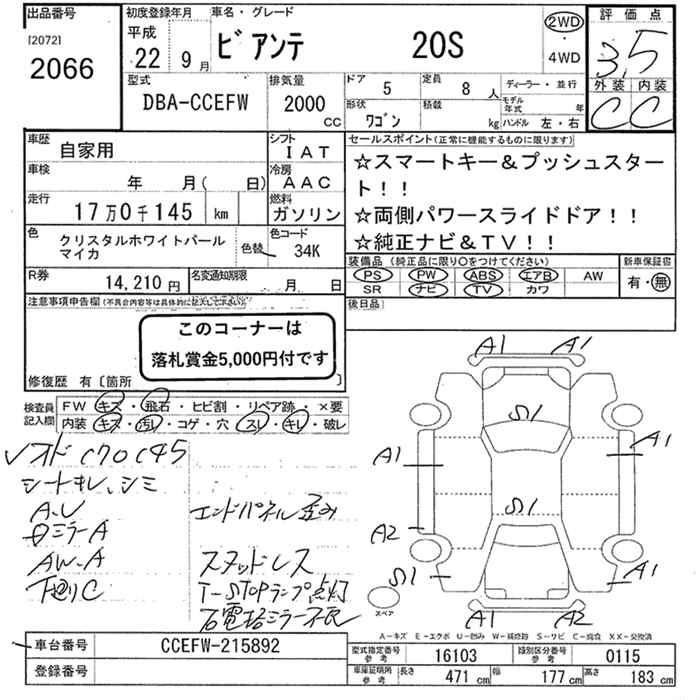 出品番号 初度登録年月 車名・グレード 評価点
[2072] 平成 2WD
2066 22 年 9 月 ビアンテ 20S 4WD 3.5
型式 排気量 ドア 5 定員 8 人 ディーラー・並行 外装 内装
DBA-CCEFW 2000 CC 形状 ワゴン 積載 kg モデル年式 年 C C
ハンドル 左・右
車歴 自家用 シフト IAT セールスポイント(正常に機能するものに限ります)
車検 年 月( 日) 冷房 AAC ☆スマートキー&プッシュスター
ト!!
走行 17万0千145 km 燃料 ガソリン ☆両側パワースライドドア!!
色 クリスタルホワイトパール 色替 色コード 34K ☆純正ナビ&TV!!
マイカ
装備品(純正品に限り○をつけてください) 新車保証書
R券 14,210円 名変通知期限 月 日 PS PW ABS エアB AW 有・無
SR ナビ TV カワ
注意事項申告欄(不具合内容等は具体的に記入して下さい) 後日品
このコーナーは
落札賞金5,000円付です
修復歴 有〔箇所 〕
検査員記入欄 FW キズ・飛石・ヒビ割・リペア跡・×要
内装 キズ・汚れ・コゲ・穴・スレ・キレ・破レ
シートキレ、シミ
エンドパネル歪み
ミラーA
AW.A スタッドレス
下廻りC T-STOPランプ点灯
A1 A1
S1
A1 A1
S1
A2
S1 A1
スペア
A1 A2
A-キズ E-エクボ U-凹み W-補修跡 S-サビ C-腐食 XX-交換済
車台番号 CCEFW-215892 型式指定番号 参考 16103 類別区分番号 参考 0115
登録番号 車庫証明用 参考 長さ 471 cm 幅 177 cm 高さ 183 cm